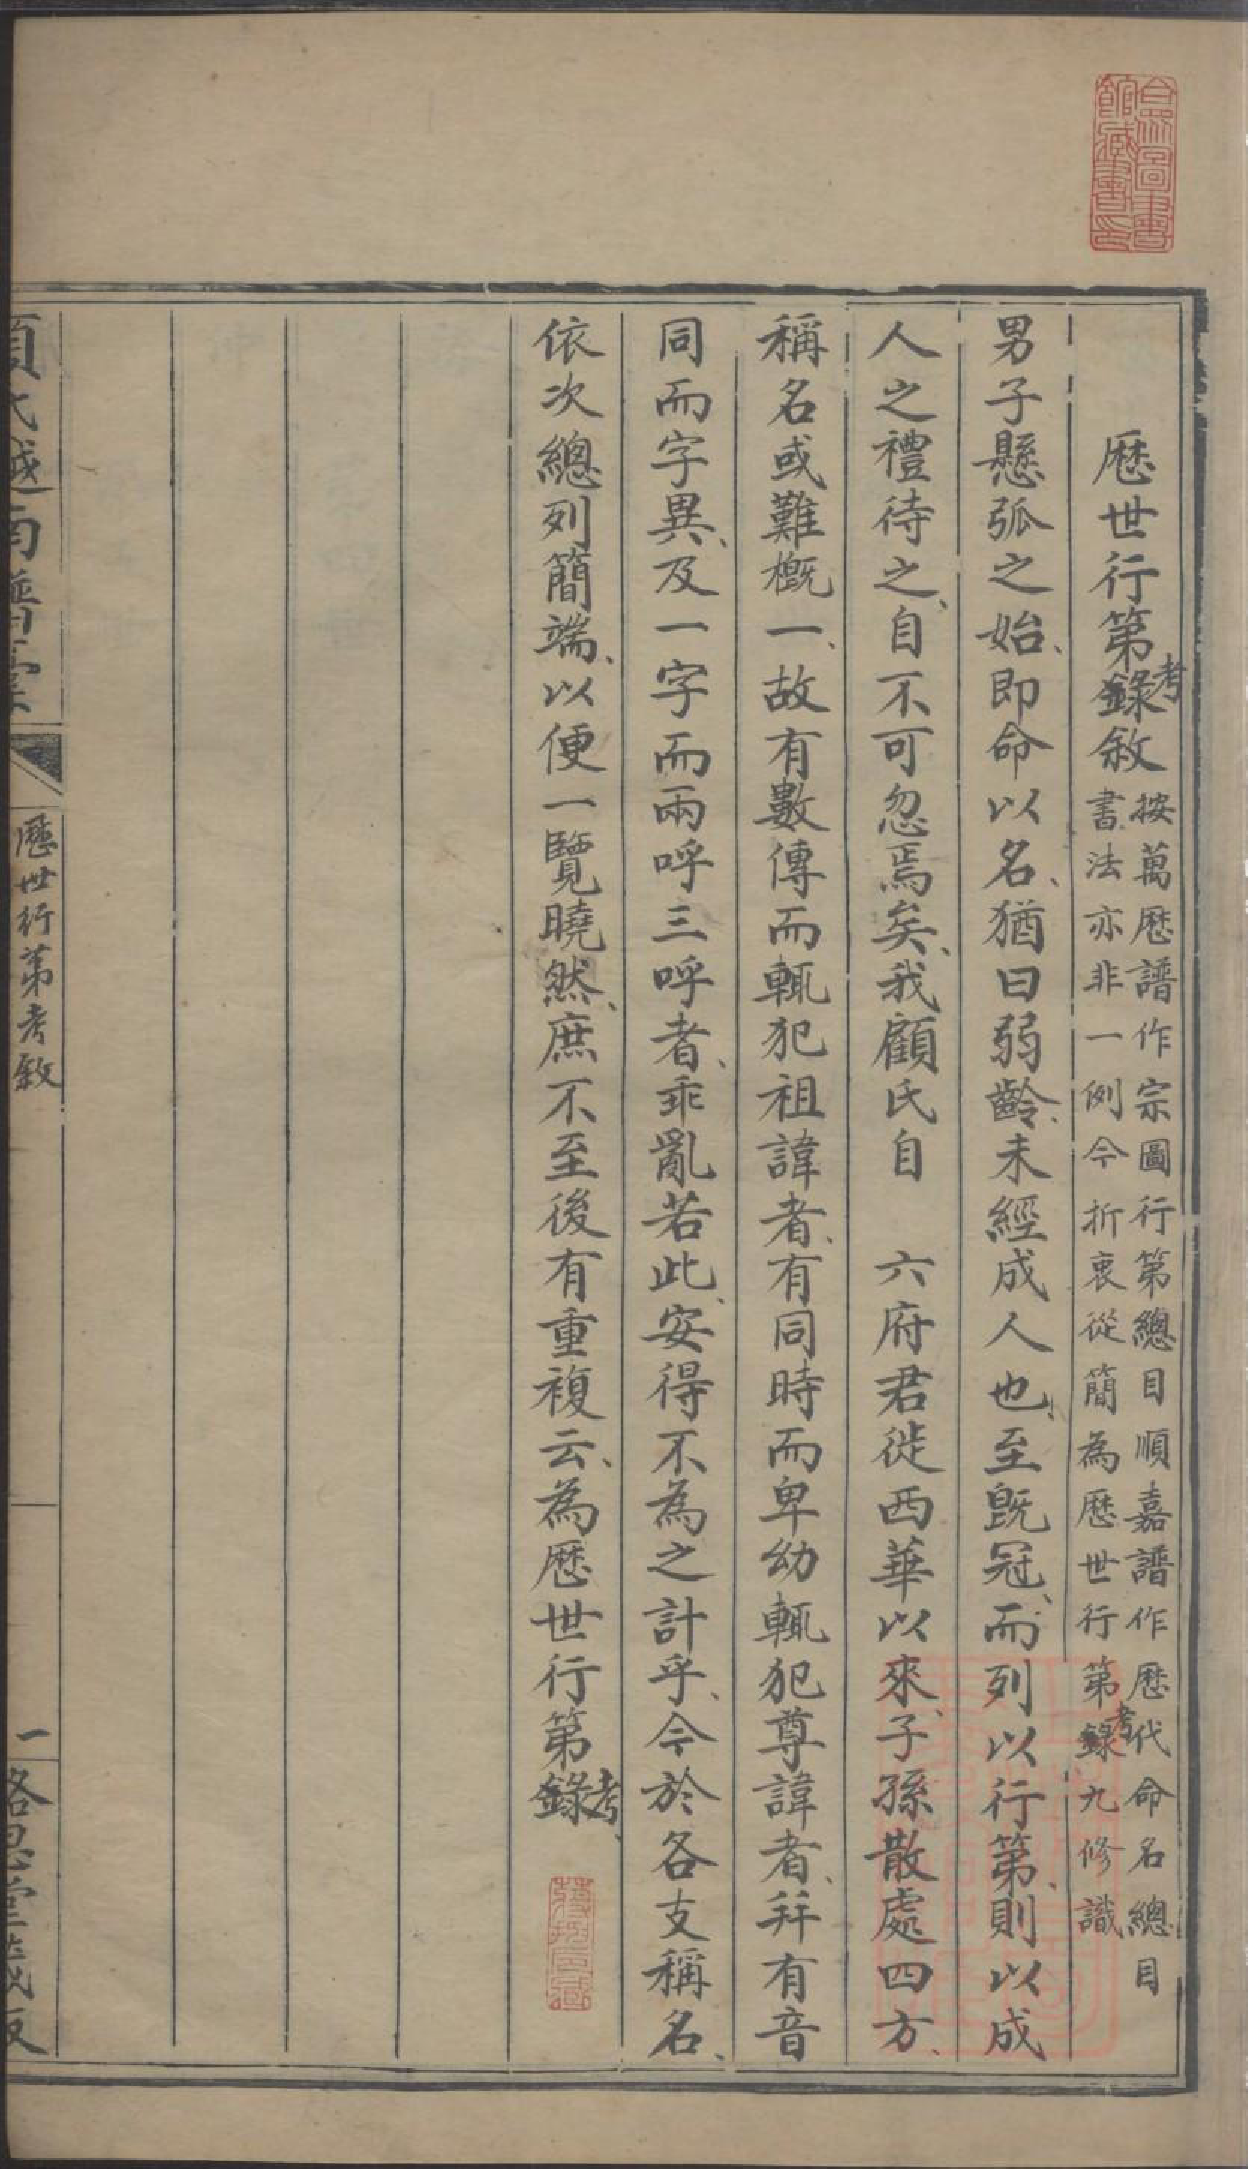 合眾圖書
館藏書印
歷世行第錄考敘
按萬歷譜作宗圖行第總目順嘉譜作歷代命名總目
書法亦非一例今折衷從簡為歷世行第錄考九修識
男子懸弧之始、即命以名、猶曰弱齡、未經成人也、至旣冠、而列以行第、則以成
人之禮待之、自不可忽焉矣、我顧氏自 六府君徙西華以來、子孫散處四方、
稱名或難概一、故有數傳而輒犯祖諱者、有同時而卑幼輒犯尊諱者、幷有音
同而字異、及一字而兩呼三呼者、乖亂若此、安得不為之計乎、今於各支稱名、
依次總列簡端、以便一覽曉然、庶不至後有重複云、為歷世行第錄考、
歷世行第考敘
一